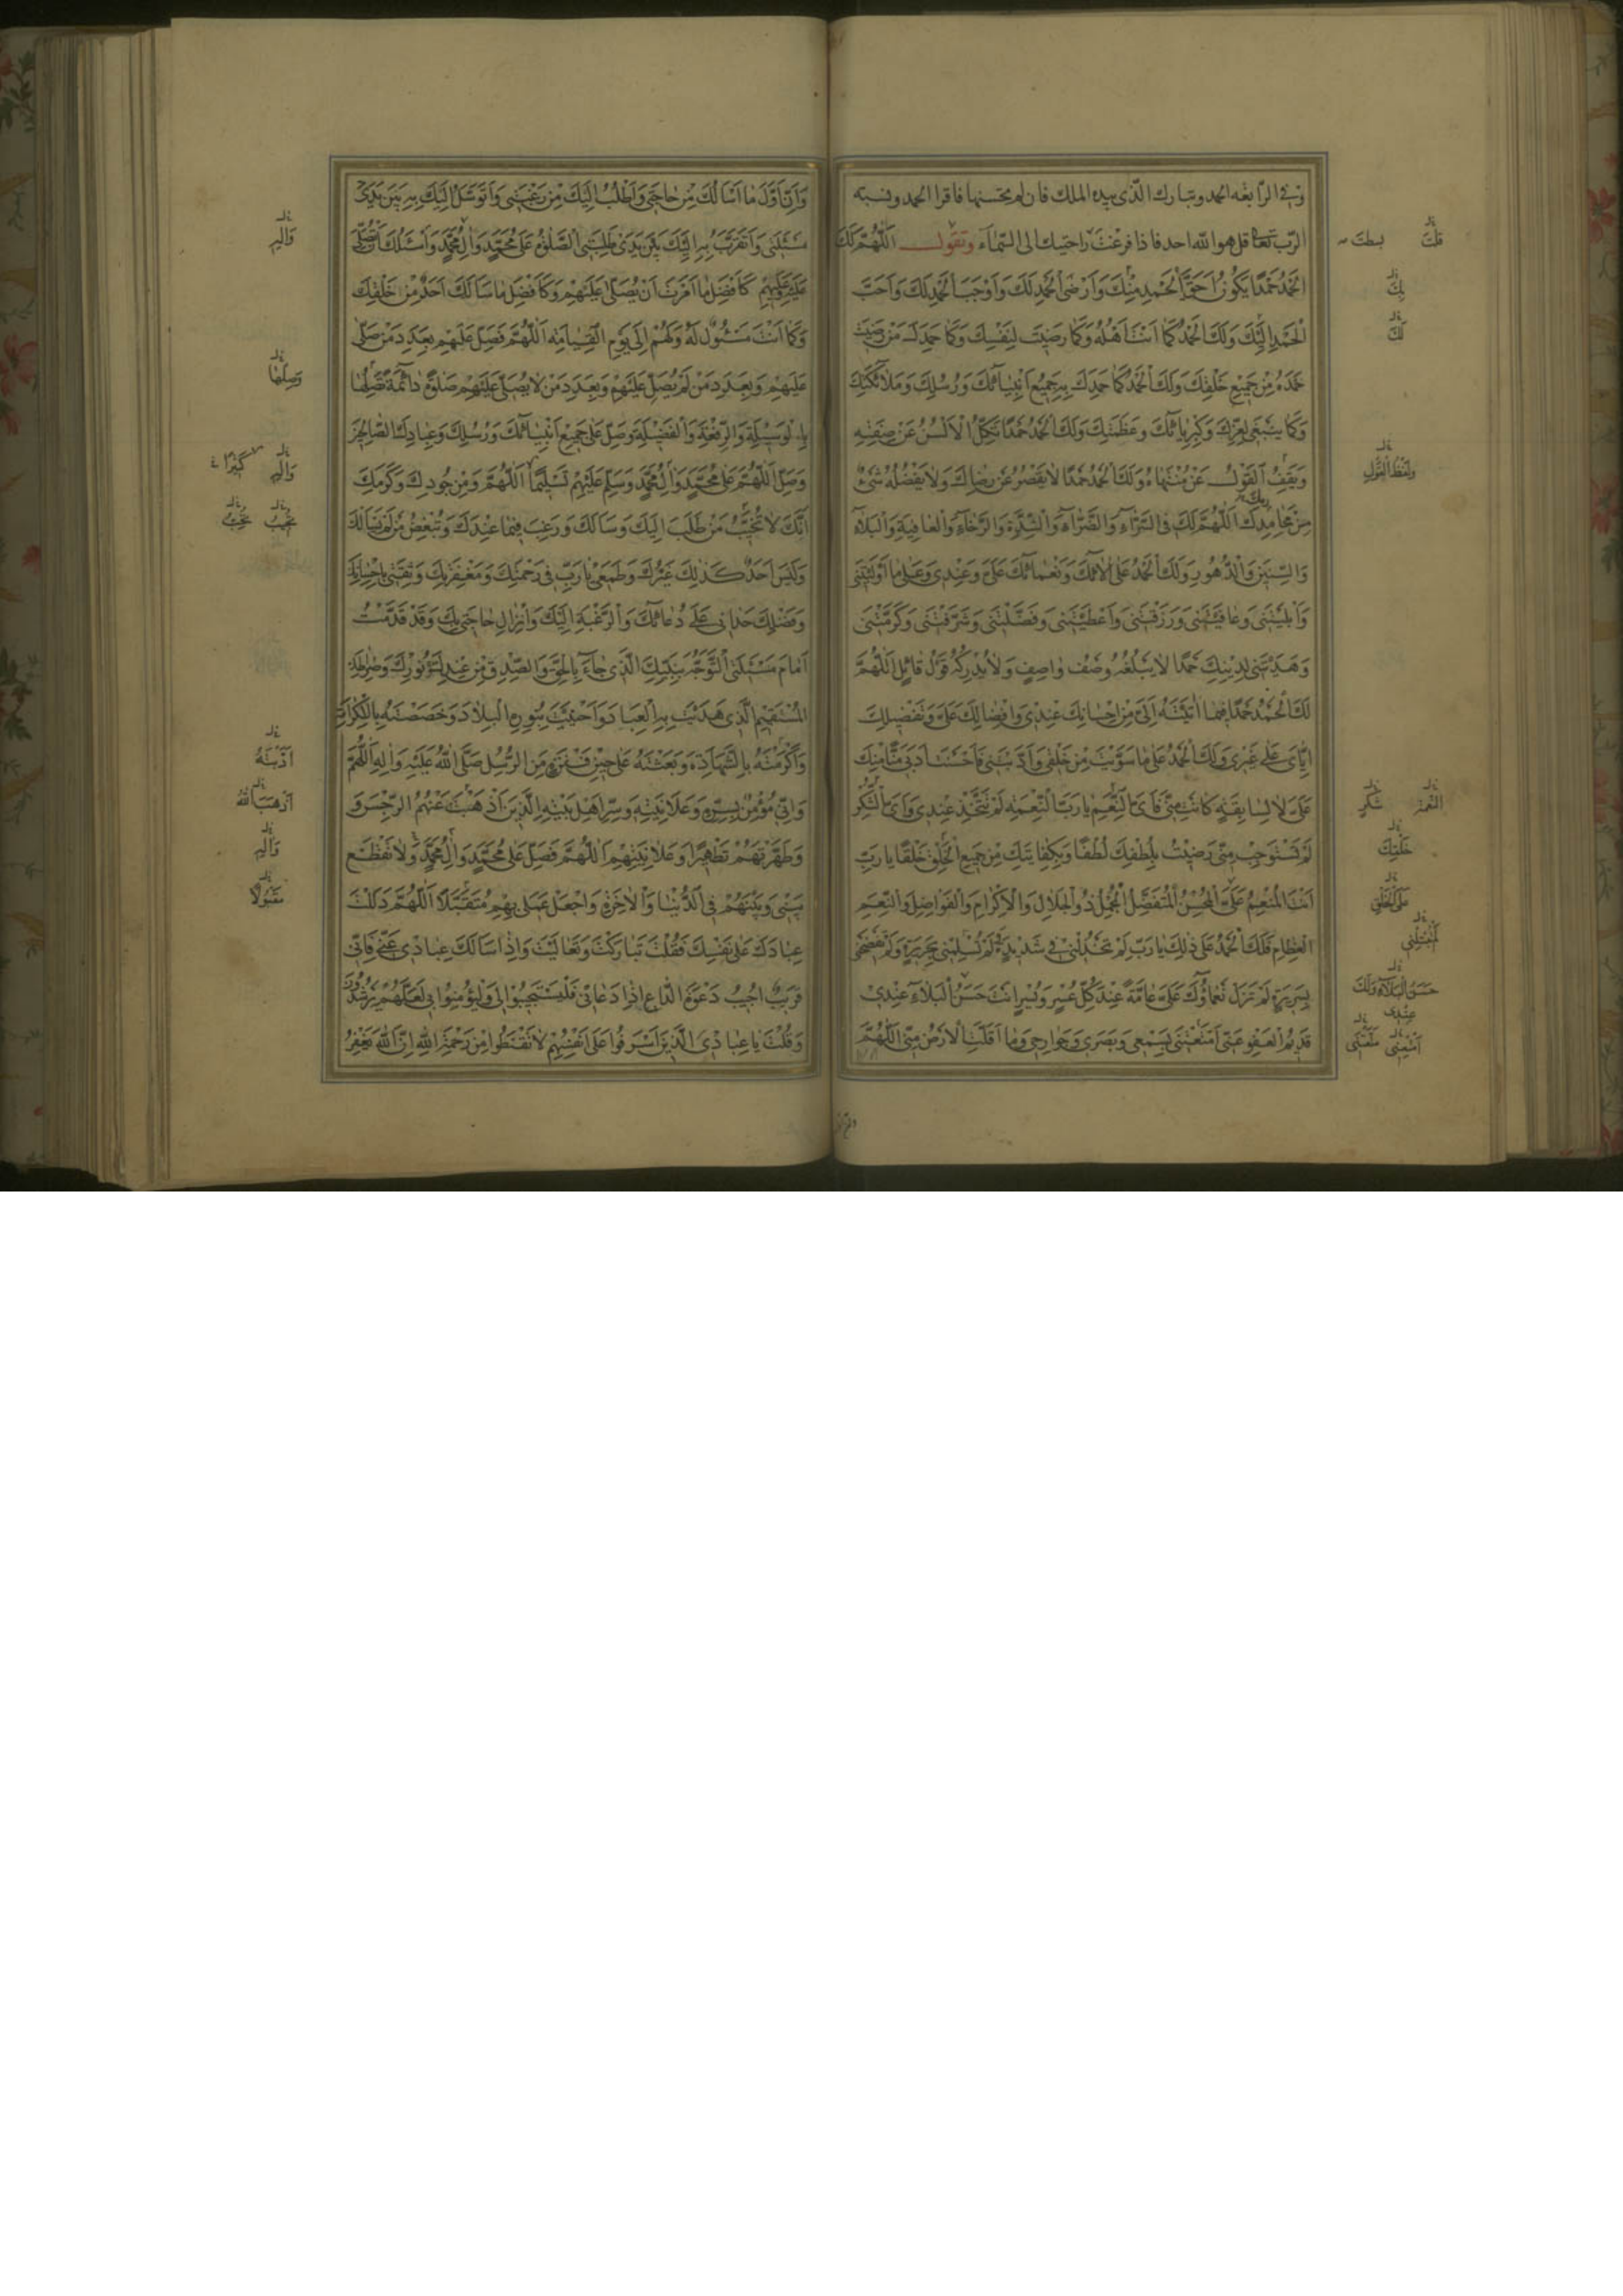 وفي الرابعة الحمد وتبارك الذى بيده الملك فان لم تحسنها فاقرا الحمد ونسبه
الرب تعالى قل هو الله احد فاذا فرغت راحتيك الى السماء وتقول اَللّهُمَّ لَكَ
الْحَمْدُ حَمْدًا يَكُونُ اَحَقَّ الْحَمْدِ مِنْكَ وَاَرْضَى الْحَمْدِ لَكَ وَاَوْجَبَ الْحَمْدِ لَكَ وَاَحَبَّ
الْحَمْدِ اِلَيْكَ وَلَكَ الْحَمْدُ كَما اَنْتَ اَهْلُهُ وَكَما رَضِيتَ لِنَفْسِكَ وَكَما حَمِدَكَ مَنْ رَضِيتَ
حَمْدَهُ مِنْ جَمِيعِ خَلْقِكَ وَلَكَ الْحَمْدُ كَما حَمِدَكَ بِهِ جَمِيعُ اَنْبِيائِكَ وَرُسُلِكَ وَمَلائِكَتِكَ
وَكَما يَنْبَغي لِعِزِّكَ وَكِبْرِيائِكَ وَعَظَمَتِكَ وَلَكَ الْحَمْدُ حَمْدًا تَكِلُّ الْاَلْسُنُ عَنْ صِفَتِهِ
وَيَقِفُ الْقَوْلُ عَنْ مُنْتَهاهُ وَلَكَ الْحَمْدُ حَمْدًا لا يَقْصُرُ عَنْ رِضاكَ وَلا يَفْضُلُهُ شَيْءٌ
مِنْ مَحامِدِكَ اَللّهُمَّ لَكَ فِي السَّرّاءِ وَالضَّرّاءِ وَالشِّدَّةِ وَالرَّخاءِ وَالْعافِيَةِ وَالْبَلاءِ
وَالسِّنِينَ وَالدُّهُورِ وَلَكَ الْحَمْدُ عَلى الائِكَ وَنَعْمائِكَ عَلَيَّ وَعِنْدِي وَعَلى ما اَوْلَيْتَنِي
وَاَبْلَيْتَنِي وَعافَيْتَنِي وَرَزَقْتَنِي وَاَعْطَيْتَنِي وَفَضَّلْتَنِي وَشَرَّفْتَنِي وَكَرَّمْتَنِي
وَهَدَيْتَنِي لِدِينِكَ حَمْدًا لا يَبْلُغُهُ وَصْفُ واصِفٍ وَلا يُدْرِكُهُ قَوْلُ قائِلٍ اَللّهُمَّ
لَكَ الْحَمْدُ حَمْدًا فِيما اَتَيْتَهُ اِلَيَّ مِنْ اِحْسانِكَ عِنْدِي وَاِفْضالِكَ عَلَيَّ وَتَفْضِيلِكَ
اِيّايَ عَلى غَيْرِي وَلَكَ الْحَمْدُ عَلى ما سَوَّيْتَ مِنْ خَلْقِي وَاَدَّبْتَنِي فَاَحْسَنْتَ اَدَبِي مَنًّا مِنْكَ
عَلَيَّ لا لِسابِقَةٍ كانَتْ مِنِّي فَاَيَّ النِّعَمِ يا رَبِّ لَمْ تَتَّخِذْ عِنْدِي وَاَيَّ الشُّكْرِ
لَمْ تَسْتَوْجِبْ مِنِّي رَضِيتُ بِلُطْفِكَ لُطْفًا وَبِكِفايَتِكَ مِنْ جَمِيعِ الْخَلْقِ خَلْقًا يا رَبِّ
اَنْتَ الْمُنْعِمُ عَلَيَّ الْمُحْسِنُ الْمُتَفَضِّلُ الْمُجْمِلُ ذُو الْجَلالِ وَالْاِكْرامِ وَالْفَواضِلِ وَالنِّعَمِ
الْعِظامِ فَلَكَ الْحَمْدُ عَلى ذلِكَ يا رَبِّ لَمْ تَخْذُلْنِي فِي شَدِيدَةٍ وَلَمْ تُسْلِمْنِي بِجَرِيرَةٍ وَلَمْ تَفْضَحْنِي
بِسَرِيرَةٍ لَمْ تَزَلْ نَعْماؤُكَ عَلَيَّ عامَّةً عِنْدَ كُلِّ عُسْرٍ وَيُسْرٍ اَنْتَ حَسَنُ الْبَلاءِ عِنْدِي
قَدِيمُ الْعَفْوِ عَنِّي اَمْتَعْتَنِي بِسَمْعِي وَبَصَرِي وَجَوارِحِي وَما اَقَلَّتِ الْاَرْضُ مِنِّي اَللّهُمَّ
قلت بسطت
بِكَ
لَكَ
وَلَفْظُ الْقَوْلِ
شُكْرٍ
خَلْقِكَ
حَسَنُ الْبَلاءِ وَلَكَ
عِنْدِي
وَاِنَّ اَوَّلَ ما اَسْاَلُكَ مِنْ حاجَتِي وَاَطْلُبُ اِلَيْكَ مِنْ رَغْبَتِي وَاَتَوَسَّلُ اِلَيْكَ بِهِ بَيْنَ يَدَيْ
مَسْئَلَتِي وَاَتَقَرَّبُ بِهِ اِلَيْكَ بَيْنَ يَدَيْ طَلِبَتِي الصَّلوةُ عَلى مُحَمَّدٍ وَالِ مُحَمَّدٍ وَاَسْئَلُكَ اَنْ تُصَلِّيَ
عَلَيْهِ وَعَلَيْهِمْ كَاَفْضَلِ ما اَمَرْتَ اَنْ يُصَلّى عَلَيْهِمْ وَكَاَفْضَلِ ما سَاَلَكَ اَحَدٌ مِنْ خَلْقِكَ
وَكَما اَنْتَ مَسْئُولٌ لَهُ وَلَهُمْ اِلى يَوْمِ الْقِيامَةِ اَللّهُمَّ فَصَلِّ عَلَيْهِمْ بِعَدَدِ مَنْ صَلّى
عَلَيْهِمْ وَبِعَدَدِ مَنْ لَمْ يُصَلِّ عَلَيْهِمْ وَبِعَدَدِ مَنْ لا يُصَلّي عَلَيْهِمْ صَلوةً دائِمَةً تَصِلُها
بِالْوَسِيلَةِ وَالرِّفْعَةِ وَالْفَضِيلَةِ وَصَلِّ عَلى جَمِيعِ اَنْبِيائِكَ وَرُسُلِكَ وَعِبادِكَ الصّالِحِينَ
وَصَلِّ اللّهُمَّ عَلى مُحَمَّدٍ وَالِ مُحَمَّدٍ وَسَلِّمْ عَلَيْهِمْ تَسْلِيمًا اَللّهُمَّ وَمِنْ جُودِكَ وَكَرَمِكَ
اَنَّكَ لا تُخَيِّبُ مَنْ طَلَبَ اِلَيْكَ وَسَاَلَكَ وَرَغِبَ فِيما عِنْدَكَ وَتُبْغِضُ مَنْ لَمْ يَسْاَلْكَ
وَلَيْسَ اَحَدٌ كَذلِكَ غَيْرُكَ وَطَمَعِي يا رَبِّ فِي رَحْمَتِكَ وَمَغْفِرَتِكَ وَثِقَتِي بِاِحْسانِكَ
وَفَضْلِكَ حَدانِي عَلى دُعائِكَ وَالرَّغْبَةِ اِلَيْكَ وَاِنْزالِ حاجَتِي بِكَ وَقَدْ قَدَّمْتُ
اَمامَ مَسْئَلَتِي التَّوَجُّهَ بِنَبِيِّكَ الَّذِي جاءَ بِالْحَقِّ وَالصِّدْقِ مِنْ عِنْدِكَ وَنُورِكَ وَصِراطِكَ
الْمُسْتَقِيمِ الَّذِي هَدَيْتَ بِهِ الْعِبادَ وَاَحْيَيْتَ بِنُورِهِ الْبِلادَ وَخَصَصْتَهُ بِالْكَرامَةِ
وَاَكْرَمْتَهُ بِالشَّهادَةِ وَبَعَثْتَهُ عَلى حِينِ فَتْرَةٍ مِنَ الرُّسُلِ صَلَّى اللهُ عَلَيْهِ وَالِهِ اَللّهُمَّ
وَاِنِّي مُؤْمِنٌ بِسِرِّهِ وَعَلانِيَتِهِ وَسِرِّ اَهْلِ بَيْتِهِ الَّذِينَ اَذْهَبْتَ عَنْهُمُ الرِّجْسَ وَ
وَطَهَّرْتَهُمْ تَطْهِيرًا وَعَلانِيَتِهِمْ اَللّهُمَّ فَصَلِّ عَلى مُحَمَّدٍ وَالِ مُحَمَّدٍ وَلا تَقْطَعْ
بَيْنِي وَبَيْنَهُمْ فِي الدُّنْيا وَالْاخِرَةِ وَاجْعَلْ عَمَلِي بِهِمْ مُتَقَبَّلًا اَللّهُمَّ دَلَلْتَ
عِبادَكَ عَلى نَفْسِكَ فَقُلْتَ تَبارَكْتَ وَتَعالَيْتَ وَاِذا سَاَلَكَ عِبادِي عَنِّي فَاِنِّي
قَرِيبٌ اُجِيبُ دَعْوَةَ الدّاعِ اِذا دَعانِ فَلْيَسْتَجِيبُوا لِي وَلْيُؤْمِنُوا بِي لَعَلَّهُمْ يَرْشُدُونَ
وَقُلْتَ يا عِبادِيَ الَّذِينَ اَسْرَفُوا عَلى اَنْفُسِهِمْ لا تَقْنَطُوا مِنْ رَحْمَةِ اللهِ اِنَّ اللهَ يَغْفِرُ
وَالِهِ
وَصِلْها
وَالِهِ كَثِيرًا
اَذْهَبَ اللهُ
وَالِهِ
مَقْبُولًا